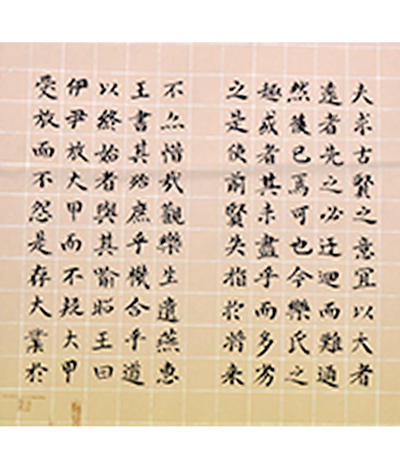 夫求古賢之意宜以大者
遠者先之必迂迴而難通
然後已焉可也今樂氏之
趣或者其未盡乎而多劣
之是使前賢失指於將來
不亦惜哉觀樂生遺燕惠
王書其殆庶乎機合乎道
以終始者與其喻昭王曰
伊尹放大甲而不疑大甲
受放而不怨是存大業於